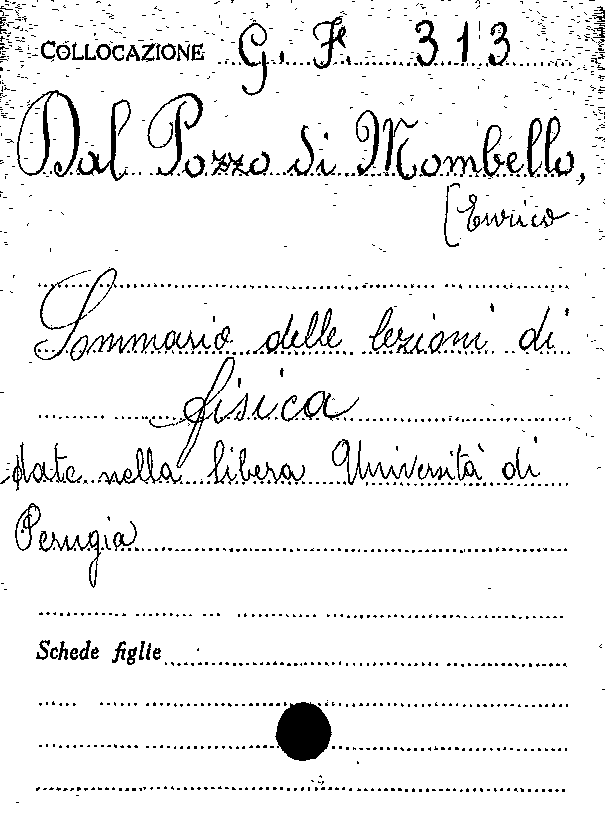 COLLOCAZIONE G. F. 313
Dal Pozzo di Mombello,
[Enrico
Sommario delle lezioni di
fisica
date nella libera Università di
Perugia
Schede figlie